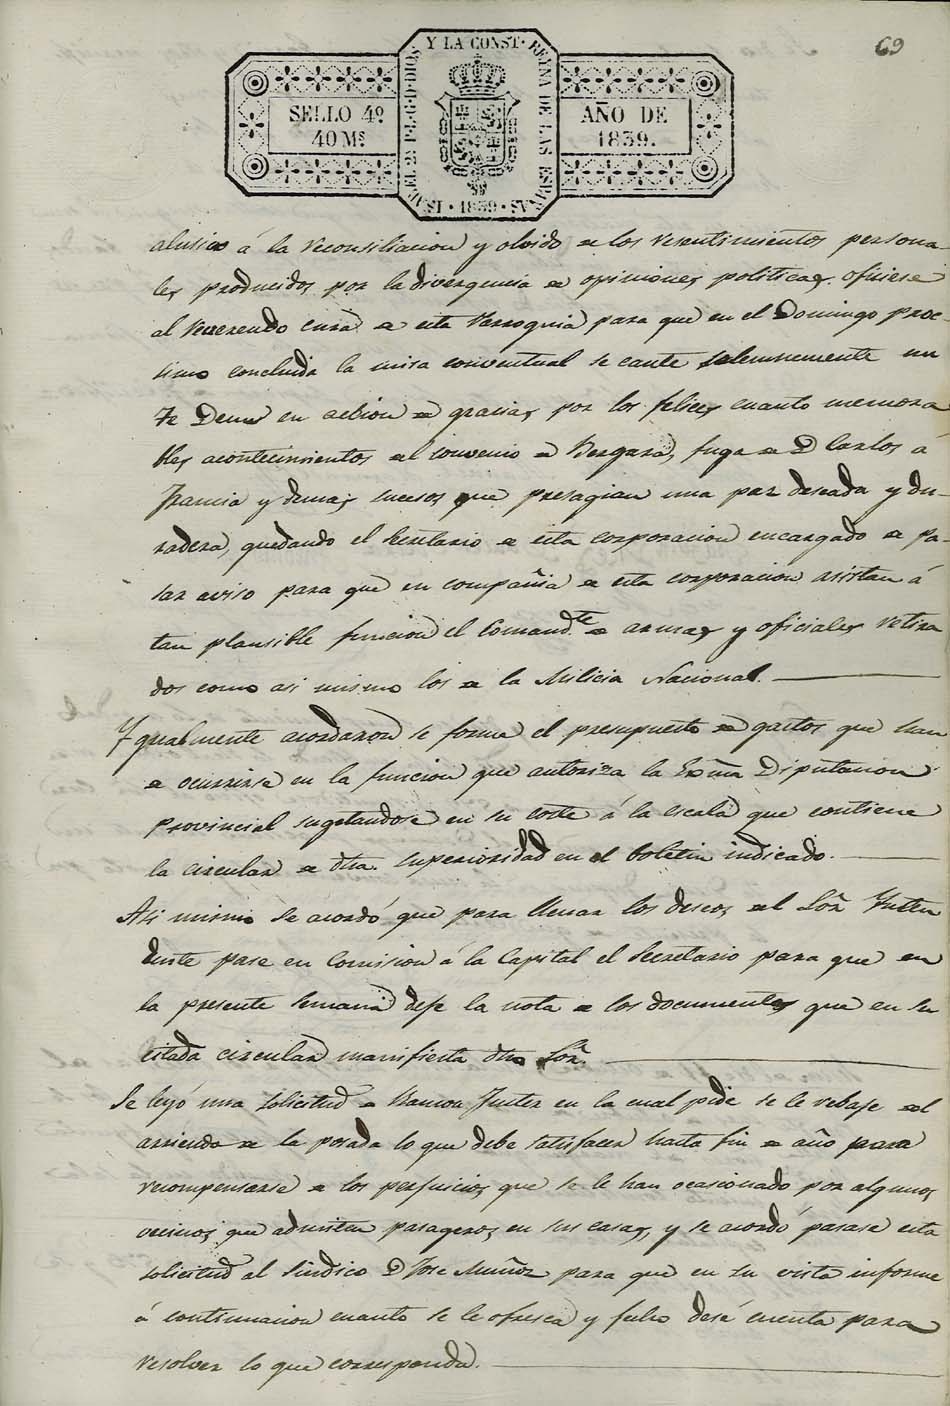 69
Y LA CONST. REYNA DE LAS ESPAÑAS
ISABEL 2ª P.L.G.D DIOS
SELLO 4º
40 Ms
AÑO DE
1839.
·1839·
alusivo á la reconsiliacion y olvido de los resentimientos persona-
les producidos por la divergencia de opiniones politicas, oficiese
al Reverendo cura de esta Parroquia para que en el Domingo proc-
simo concluida la misa conventual se cante solemnemente un
Te Deum en accion de gracias por los felices cuanto memora
bles acontecimientos del convenio de Bergara, fuga de D Carlos á
Francia y demas sucesos que presagian una paz deseada y du-
radera, quedando el Secretario de esta corporacion encargado de pa-
sar aviso para que en compañia de esta corporacion asistan á
tan plausible funcion el Comandte de armas y oficiales retira
dos como asi mismo los de la Milicia Nacional.
Ygualmente acordaron se forme el presupuesto de gastos que han
de ocurrirse en la funcion que autoriza la Exma Diputacion
Provincial sugetandose en su coste á la escala que contiene
la circular de dha. superioridad en el boletin indicado.
Asi mismo se acordó que para llenar los deseos del Sor Ynten
dente pase en Comision á la Capital el Secretario para que en
la presente semana deje la nota de los documentos que en su
citada circular manifiesta dho Sor.
Se leyó una solicitud de Ramon Juster en la cual pide se le rebaje del
arriendo de la posada lo que debe satisfacer hasta fin de año para
recompensarse de los perjuicios que se le han ocasionado por algunos
vecinos que admiten pasageros en sus casas, y se acordó pasase esta
solicitud al Sindico D Jose Muñoz para que en su vista informe
á continuacion cuanto se le ofresca y fecho dese cuenta para
resolver lo que corresponda.